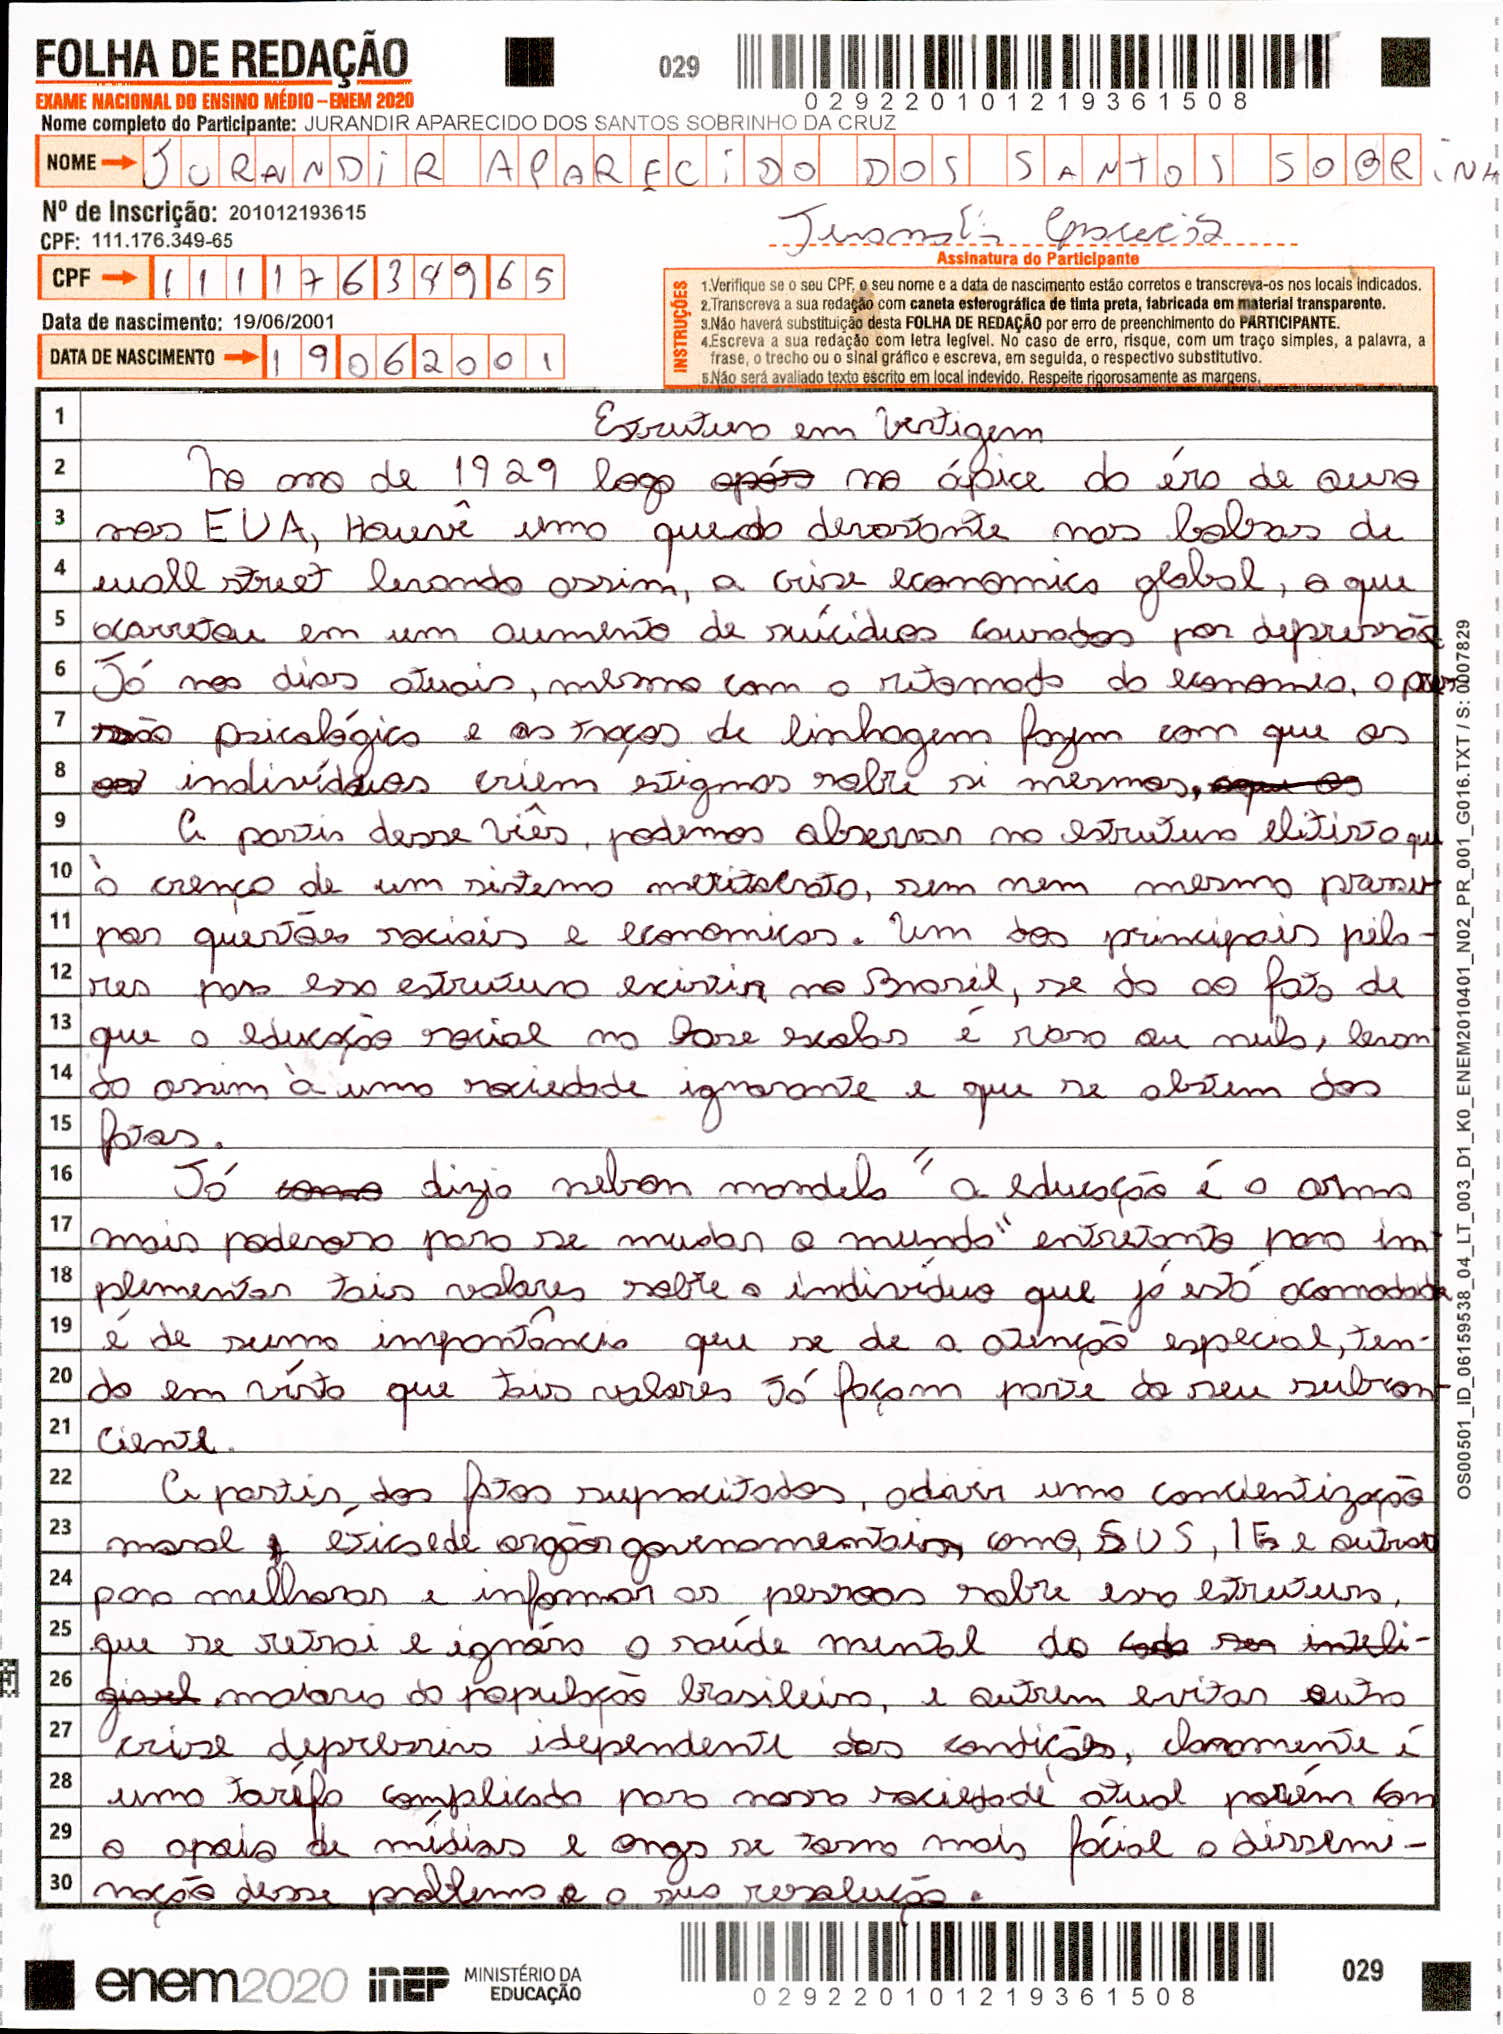 FOLHA DE REDAÇÃO
029
029220101219361508
EXAME NACIONAL DO ENSINO MÉDIO - ENEM 2020
Nome completo do Participante: JURANDIR APARECIDO DOS SANTOS SOBRINHO DA CRUZ
NOME JURANDIR APARECIDO DOS SANTOS SOBRINH
Nº de Inscrição: 201012193615
CPF: 111.176.349-65
CPF 11117634965
Assinatura do Participante
Data de nascimento: 19/06/2001
DATA DE NASCIMENTO 19062001
INSTRUÇÕES
1.Verifique se o seu CPF, o seu nome e a data de nascimento estão corretos e transcreva-os nos locais indicados.
2.Transcreva a sua redação com caneta esferográfica de tinta preta, fabricada em material transparente.
3.Não haverá substituição desta FOLHA DE REDAÇÃO por erro de preenchimento do PARTICIPANTE.
4.Escreva a sua redação com letra legível. No caso de erro, risque, com um traço simples, a palavra, a
frase, o trecho ou o sinal gráfico e escreva, em seguida, o respectivo substitutivo.
5.Não será avaliado texto escrito em local indevido. Respeite rigorosamente as margens.
1 Estrutura em Vertigem
2 No ano de 1929 logo após no ápice da éra de ouro
3 nos EUA, Houvê uma queda devastante nas bolsas de
4 wall street levando assim, a crise economica global, o que
5 acarretou em um aumento de suícidios causados por depressão
6 Já nos dias atuais, mesmo com a retomada da economia, a pres
7 são psicológica e os traços de linhagem fazem com que os
8 individuos criem estigmas sobre si mesmos.
9 A partir desse viês, podemos observar na estrutura elitista que
10 à crença de um sistema meritocrata, sem nem mesmo passar
11 por questões sociais e economicas. Um dos principais pila-
12 res para essa estrutura existir no Brasil, se da ao fato de
13 que a educação social na base escolar é rasa ou nula, levan
14 do assim à uma sociedade ignorante e que se abstem dos
15 fatos.
16 Já como dizia nelson mandela "a educação é a arma
17 mais poderosa para se mudar o mundo" entretanto para im
18 plementar tais valores sobre o individuo que já está acomodado
19 é de suma importância que se de a atenção especial, ten-
20 do em vista que tais valores já façam parte do seu subcon-
21 ciente.
22 A partir dos fatos supracitados, advir uma concientização
23 moral éticas de orgãos governamentais como, SUS, IE e outros
24 para melhorar e informar as pessoas sobre essa estrutura,
25 que se retrai e ignóra a saúde mental da cada ser inteli-
26 givel maioria da população brasileira, e outrem evitar outra
27 crise depressiva idependente das condições, claramente é
28 uma tarefa complicada para nossa sociedade atual porém com
29 o apoio de mídias e ongs se torna mais fácial a dissemi-
30 nação desse problema e a sua resolução.
OS00501_ID_06159538_04_LT_003_D1_K0_ENEM2010401_N02_PR_001_G016.TXT / S: 0007829
enem2020
inep
MINISTÉRIO DA
EDUCAÇÃO
029220101219361508
029